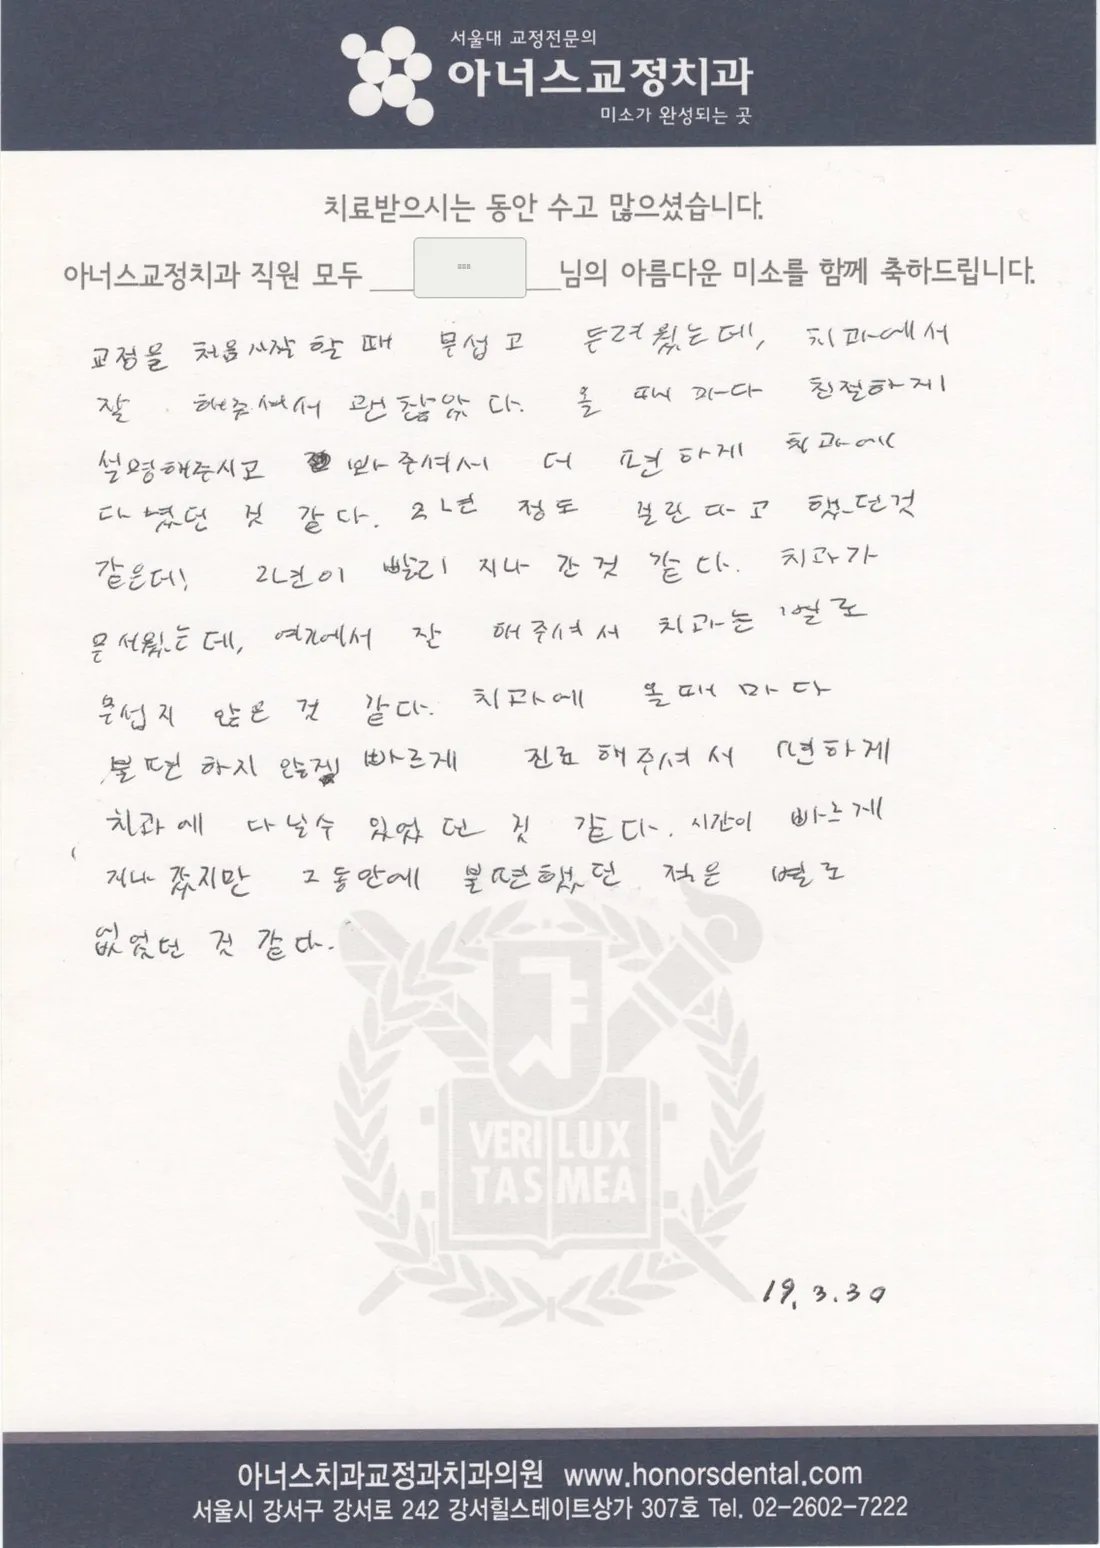 서울대 교정전문의
아너스교정치과
미소가 완성되는 곳
치료받으시는 동안 수고 많으셨습니다.
아너스교정치과 직원 모두 님의 아름다운 미소를 함께 축하드립니다.
교정을 처음 시작할 때 무섭고 두려웠는데, 치과에서
잘 해주셔서 괜찮았다. 올 때 마다 친절하게
설명해주시고 봐주셔서 더 편하게 치과에
다녔던 것 같다. 2년 정도 걸린다고 했던것
같은데, 2년이 빨리 지나간것 같다. 치과가
무서웠는데, 여기에서 잘 해주셔서 치과는 별로
무섭지 않은 것 같다. 치과에 올때마다
불편하지 않게 빠르게 진료해주셔서 편하게
치과에 다닐수 있었던 것 같다. 시간이 빠르게
지나갔지만 그동안에 불편했던 적은 별로
없었던 것 같다.
VERI LUX
TAS MEA
19. 3. 30
아너스치과교정과치과의원 www.honorsdental.com
서울시 강서구 강서로 242 강서힐스테이트상가 307호 Tel. 02-2602-7222